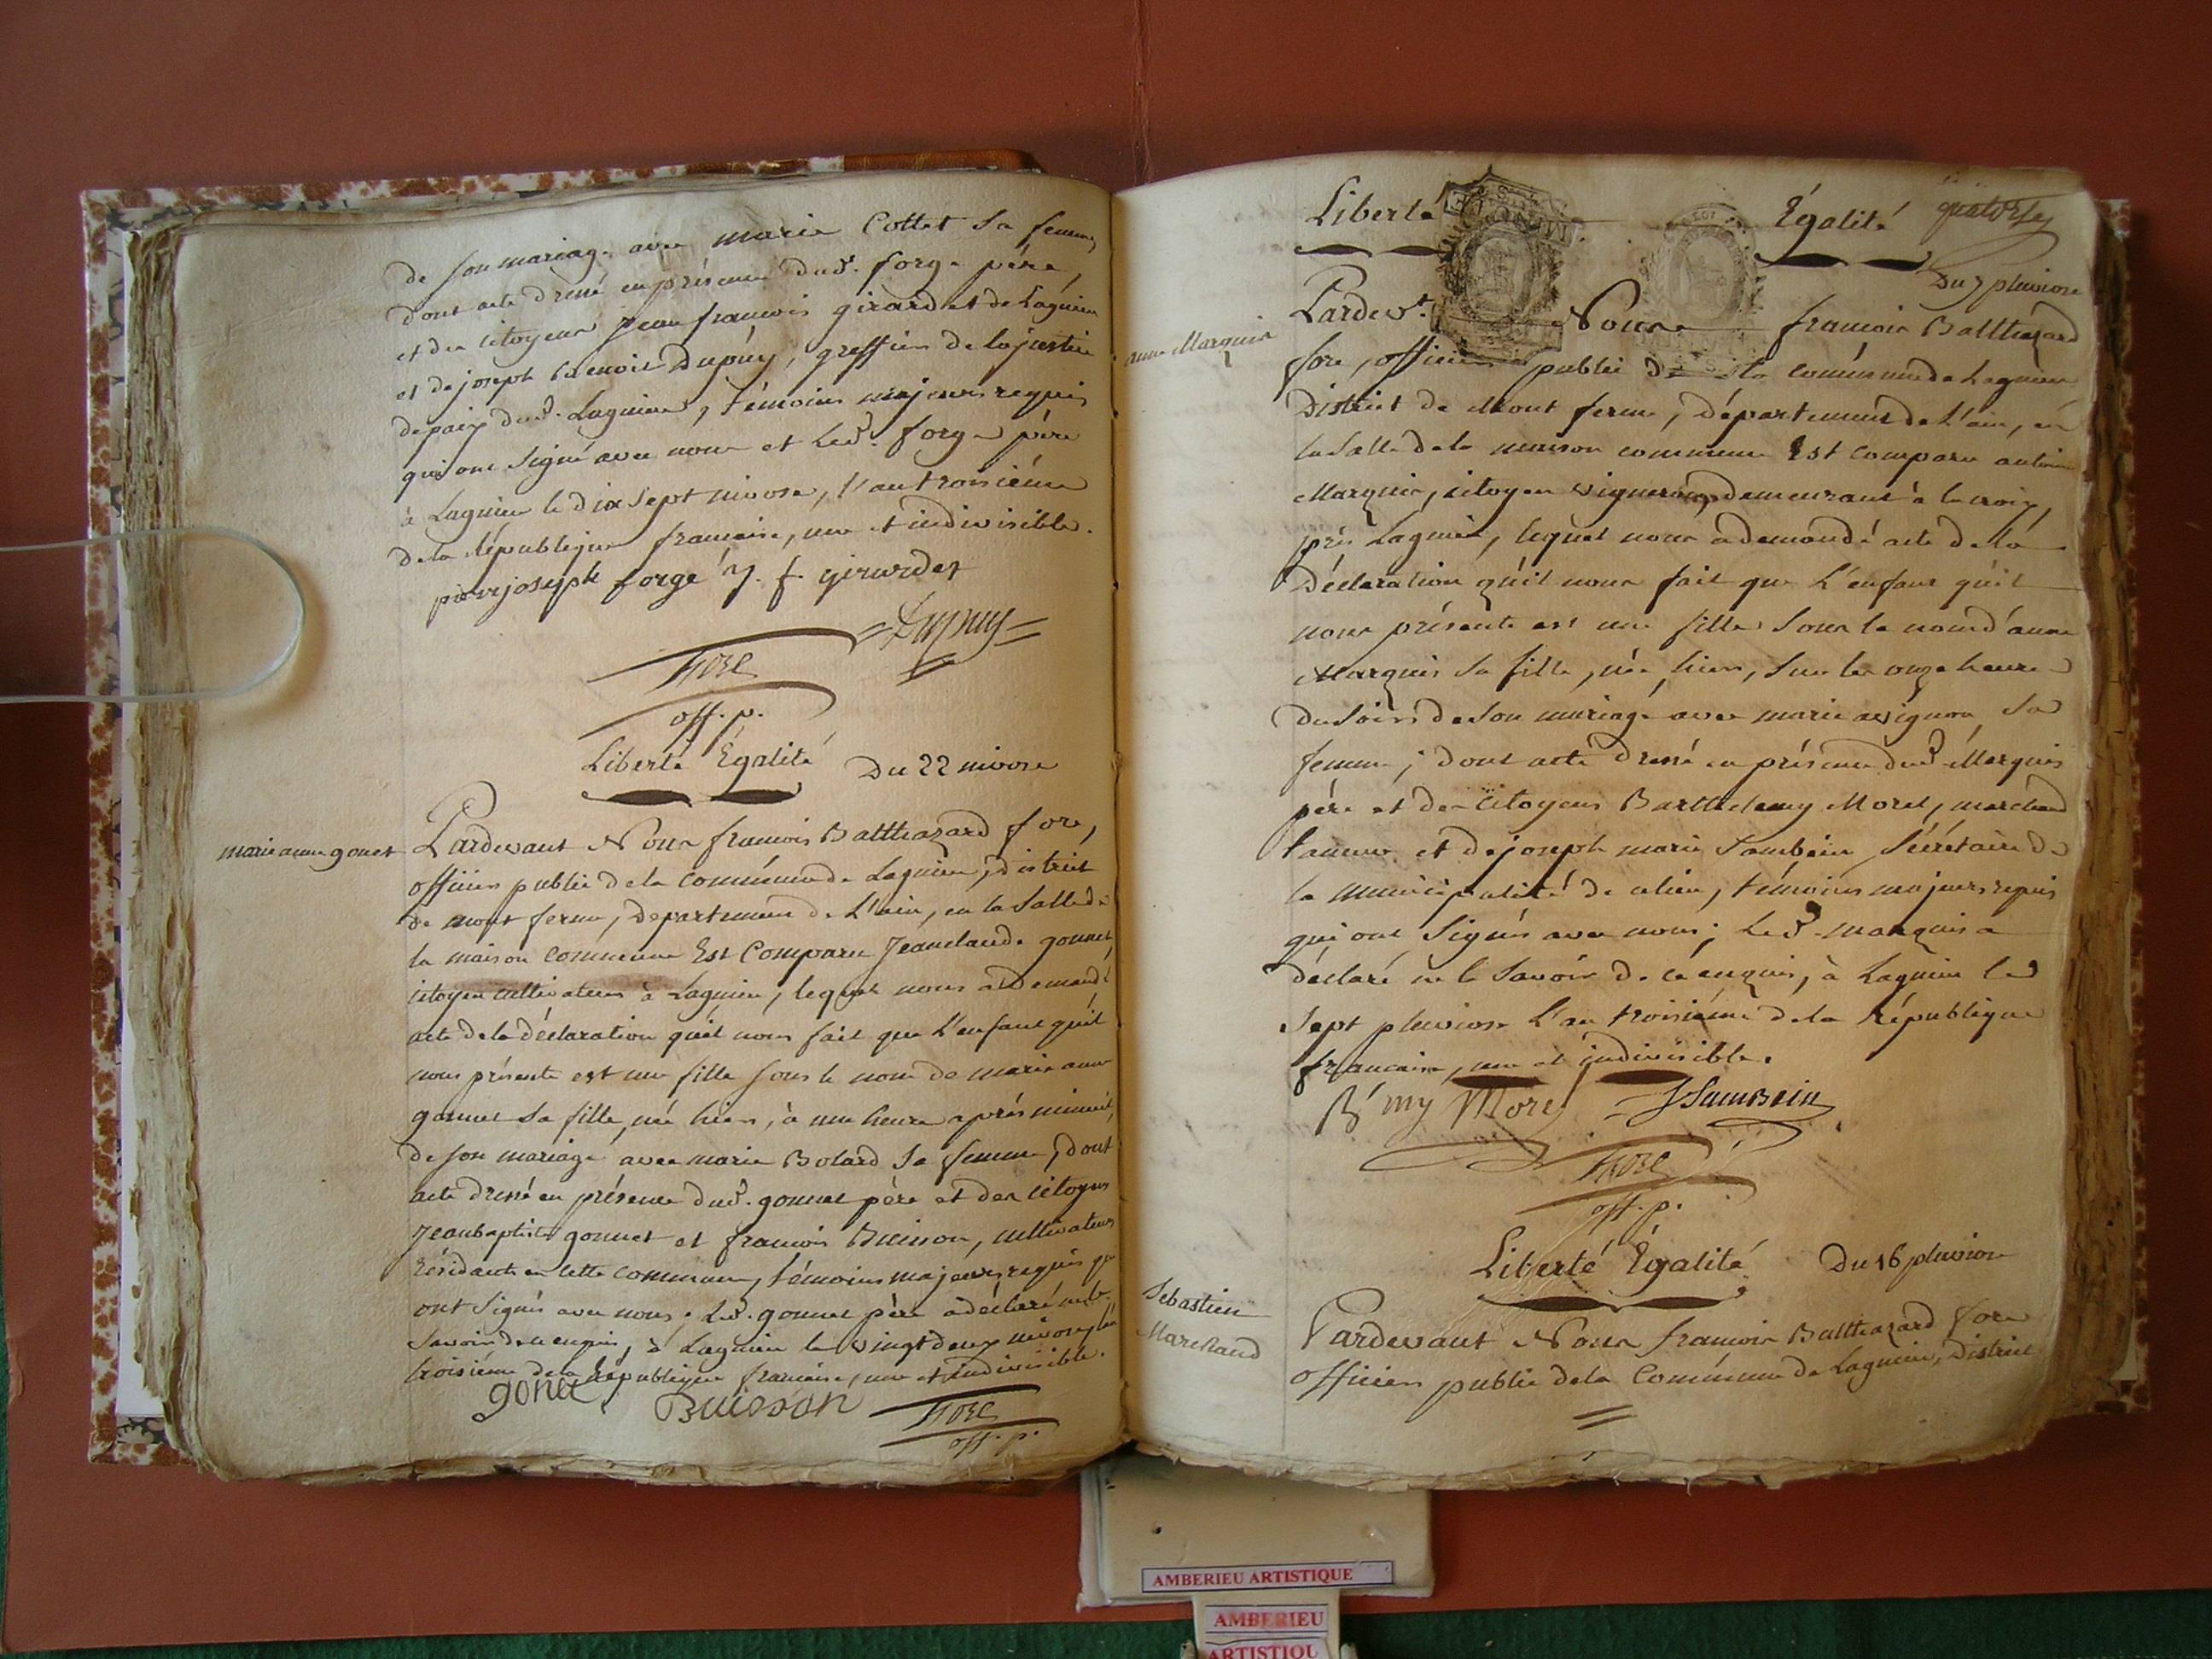 de son mariage avec marie Cottet sa femme,
dont acte dressé en présence dud. forge père,
et des citoyens jean francois girardet de Lagnieu
et de joseph benoit Dupuy, greffier de la justice
de paix dud. Lagnieu, témoins majeurs requis
qui ont signé avec nous et led. forge père
à Lagnieu le dix sept nivose, l'an troisiéme
de la République francaise, une et indivisible.
pierre joseph forge J. f. girardet
Dupuy
fore
off. p.
Liberté Égalité Du 22 nivose
marie anne gonet
Pardevant Nous francois Balthazard fore,
officier public de la commúne de Lagnieu, district
de mont ferme, département de L'ain, en la Salle de
la maison commune Est Comparu Jeanclaude gonnet,
citoyen cultivateur à Lagnieu, lequel nous a demandé
acte de la déclaration qu'il nous fait que L'enfant qu'il
nous présente est une fille sous le nom de marie anne
gonnet sa fille, née hier, à une heure après minuit,
de son mariage avec marie Bolard sa femme, dont
acte dressé en présence dud. gonnet père et des citoyens
Jeanbaptiste gonnet et francois Buisson, cultivateurs
résidants en cette commune, témoins majeurs requis qui
ont signés avec nous. Led. gonnet père a déclaré ne le
savoir de ce enquis, à Lagnieu le vingt deux nivose, l'an
troisiéme de la République francaise, une et indivisible.
gonet Buisson fore
off. p.
Liberté Égalité quatorze
Du 7 pluviose
anne Marquis
Pardevt. Nous francois Balthazard
fore, officier public de la commúne de Lagnieu
District de Mont ferme, Département de L'ain, en
la Salle de la maison commune Est Comparu antoine
Marquis, citoyen vigneron, demeurant à la croix,
près Lagnieu, lequel nous a demandé acte de la
Déclaration qu'il nous fait que L'enfant qu'il
nous présente est une fille sous le nom d'anne
Marquis sa fille, née hier, sur les onze heures
du soir de son mariage avec marie avignon sa
femme; dont acte dressé en présence dud. Marquis
père et des citoyens Barthelemy Morel, marchand
taneur et de joseph marie Sambein, Sécrétaire de
la municipalité de ce lieu, témoins majeurs requis
qui ont Signés avec nous; Led. marquis a
déclaré ne le Savoir de ce enquis, à Lagnieu le
sept pluviose L'an troisiéme de la République
francaise, une et indivisible.
B my Morel J Sambein
fore
off. p.
Liberté Égalité Du 16 pluviose
Sebastien
Marchand
Pardevant Nous francois Balthazard fore
officier public de la Commúne de Lagnieu, District
AMBERIEU ARTISTIQUE
AMBERIEU
ARTISTIQU